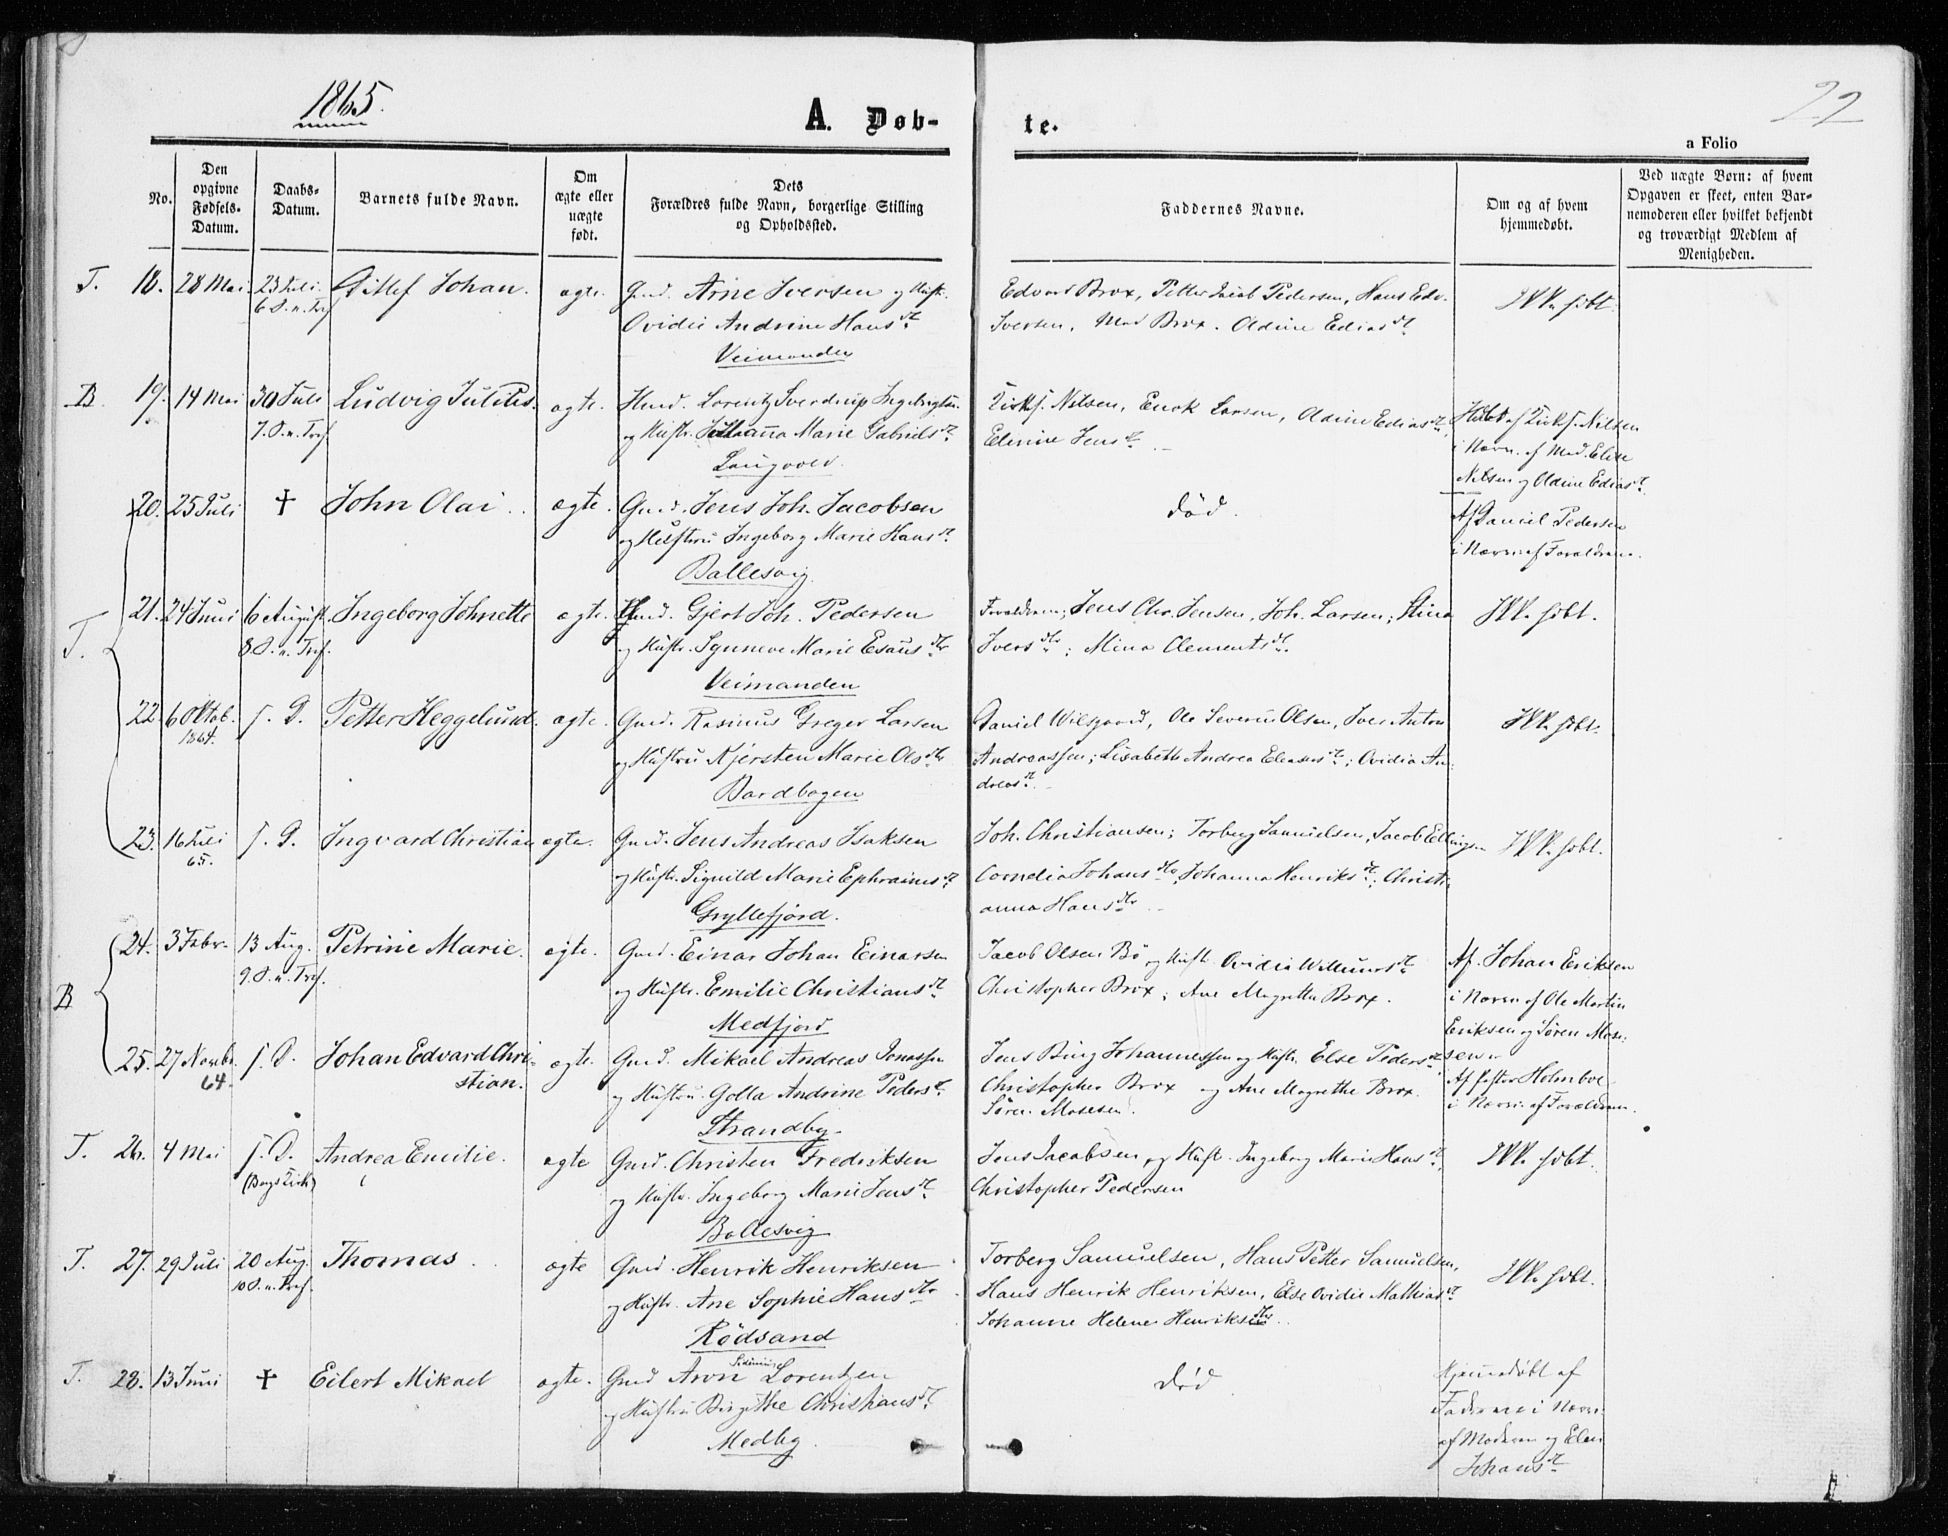 1865.
A. Døb-
te.
22
a Folio
No.
Den
opgivne
Fødsels-
Datum.
Daabs-
Datum.
Barnets fulde Navn.
Om
ægte eller
uægte
født.
Dets
Forældres fulde Navn, borgerlige Stilling
og Opholdssted.
Faddernes Navne.
Om og af hvem
hjemmedøbt.
Ved uægte Børn: af hvem
Opgaven er skeet, enten Bar-
nemoderen eller hvilket bekjendt
og troværdigt Medlem af
Menigheden.
T. 18. 28 Mai 23 Juli
6 S. n. Tref
Ditlef Johan.
ægte.
Gmd. Arne Iversen og Hustr.
Ovidie Andrine Hansdt.
Veimanden
Edvard Brox, Petter Jacob Pedersen, Hans Edv.
Iversen, Mad Brox. Aldine Ediasdt.
Ikke hdbt.
B. 19. 14 Mai 30 Juli
7. S. n. Tref
Ludvig Julius.
ægte.
Hmd. Lorentz Sverdrup Ingebrigtsn.
og Hustr. Johanna Marie Gabrielsdt.
Laugvold.
Kirks. Nilsen, Enok Larsen, Aldine Ediasdt.
Edenine Jensdt.
Hdbt af Kirks. Nilsen
i Nærv. af Mad. Elise
Nilsen og Aldine Ediasdt.
20. 25 Juli † John Olai. ægte.
Gmd. Jens Joh. Jacobsen
og Hustru Ingeborg Marie Hansdt.
Ballesvig
Død.
Af Daniel Pedersen
i Nærv. af Forældrene.
T.
21. 24 Juni 6 August.
8. S. n. Tref.
Ingeborg Johnette
ægte.
Gmd. Gjert Joh. Pedersen
og Hustr. Synneve Marie Esausdtr
Veimanden
Forældrene; Jens Chr. Jensen, Joh. Larsen; Stina
Iversdtr; Mina Clementsdt.
Ikke hdbt.
22. 6 Oktob.
1864.
s. D. Petter Heggelund. ægte.
Gmd. Rasmus Greger Larsen
og Hustru Kjersten Marie Olsdtr
Bardbogen
Daniel Wilsgaard, Ole Severin Olsen, Iver Anton
Andreassen; Lisabeth Andrea Eleasersdt.; Ovidia An-
dreasdt.
Ikke hdbt.
23. 16 Juli
65.
s. D. Ingvard Christian ægte.
Gmd. Jens Andreas Isaksen
og Hustr. Signild Marie Ephraimsdt.
Gryllefjord.
Joh. Christiansen; Torberg Samuelsen, Jacob Ellingsen
Cornelia Johansdtr, Johanna Henriksdt.; Christi-
anna Hansdtr
Ikke hdbt.
B
24. 3 Febr. 13 Aug.
9. S. n. Tref.
Petrine Marie. ægte.
Gmd. Einar Johan Einarsen
og Hustr. Emilie Christiansdt.
Medfjord
Jacob Olsen Bø og Hustr. Ovidia Willumsdt.
Christopher Brox; Ane Magrethe Brox.
Af. Johan Eriksen
i Nærv. af Ole Martin
Eriksen og Søren Mose-
sen.
25. 27 Novbr.
64.
s. D. Johan Edvard Chri-
stian.
ægte.
Gmd. Mikael Andreas Jonassen
og Hustru Golla Andrine Pedersdt.
Strandby
Jens Bing Johannessen og Hustr. Else Pedersdt.
Christopher Brox og Ane Magrethe Brox.
Søren Mosesen.
Af Pastor Holmboe
i Nærv. af Forældrene.
T. 26. 4 Mai s. D.
(Bergs Kirk)
Andrea Emilie. ægte
Gmd. Christen Fredriksen
og Hustr. Ingeborg Marie Jensdt.
Ballesvig
Jens Jacobsen og Hustr. Ingeborg Marie Hansdt.
Christopher Pedersen
Ikke hdbt.
T. 27. 29 Juli 20 Aug.
10 S. n. Tref.
Thomas ægte
Gmd. Henrik Henriksen
og Hustr. Ane Sophie Hansdtr.
Rödsand
Torberg Samuelsen, Hans Petter Samuelsen,
Hans Henrik Henriksen, Else Ovidie Mathiasdt.
Johanne Helene Henriksdtr.
Ikke hdbt.
T. 28. 13 Juni † Eilert Mikael ægte.
Gmd Aron Lorentzen
og Hustru Birgithe Christiansdt.
Medby.
Død
Hjemmedöbt af
Faderen i Nærv.
af Moderen og Elen
Johansdt.